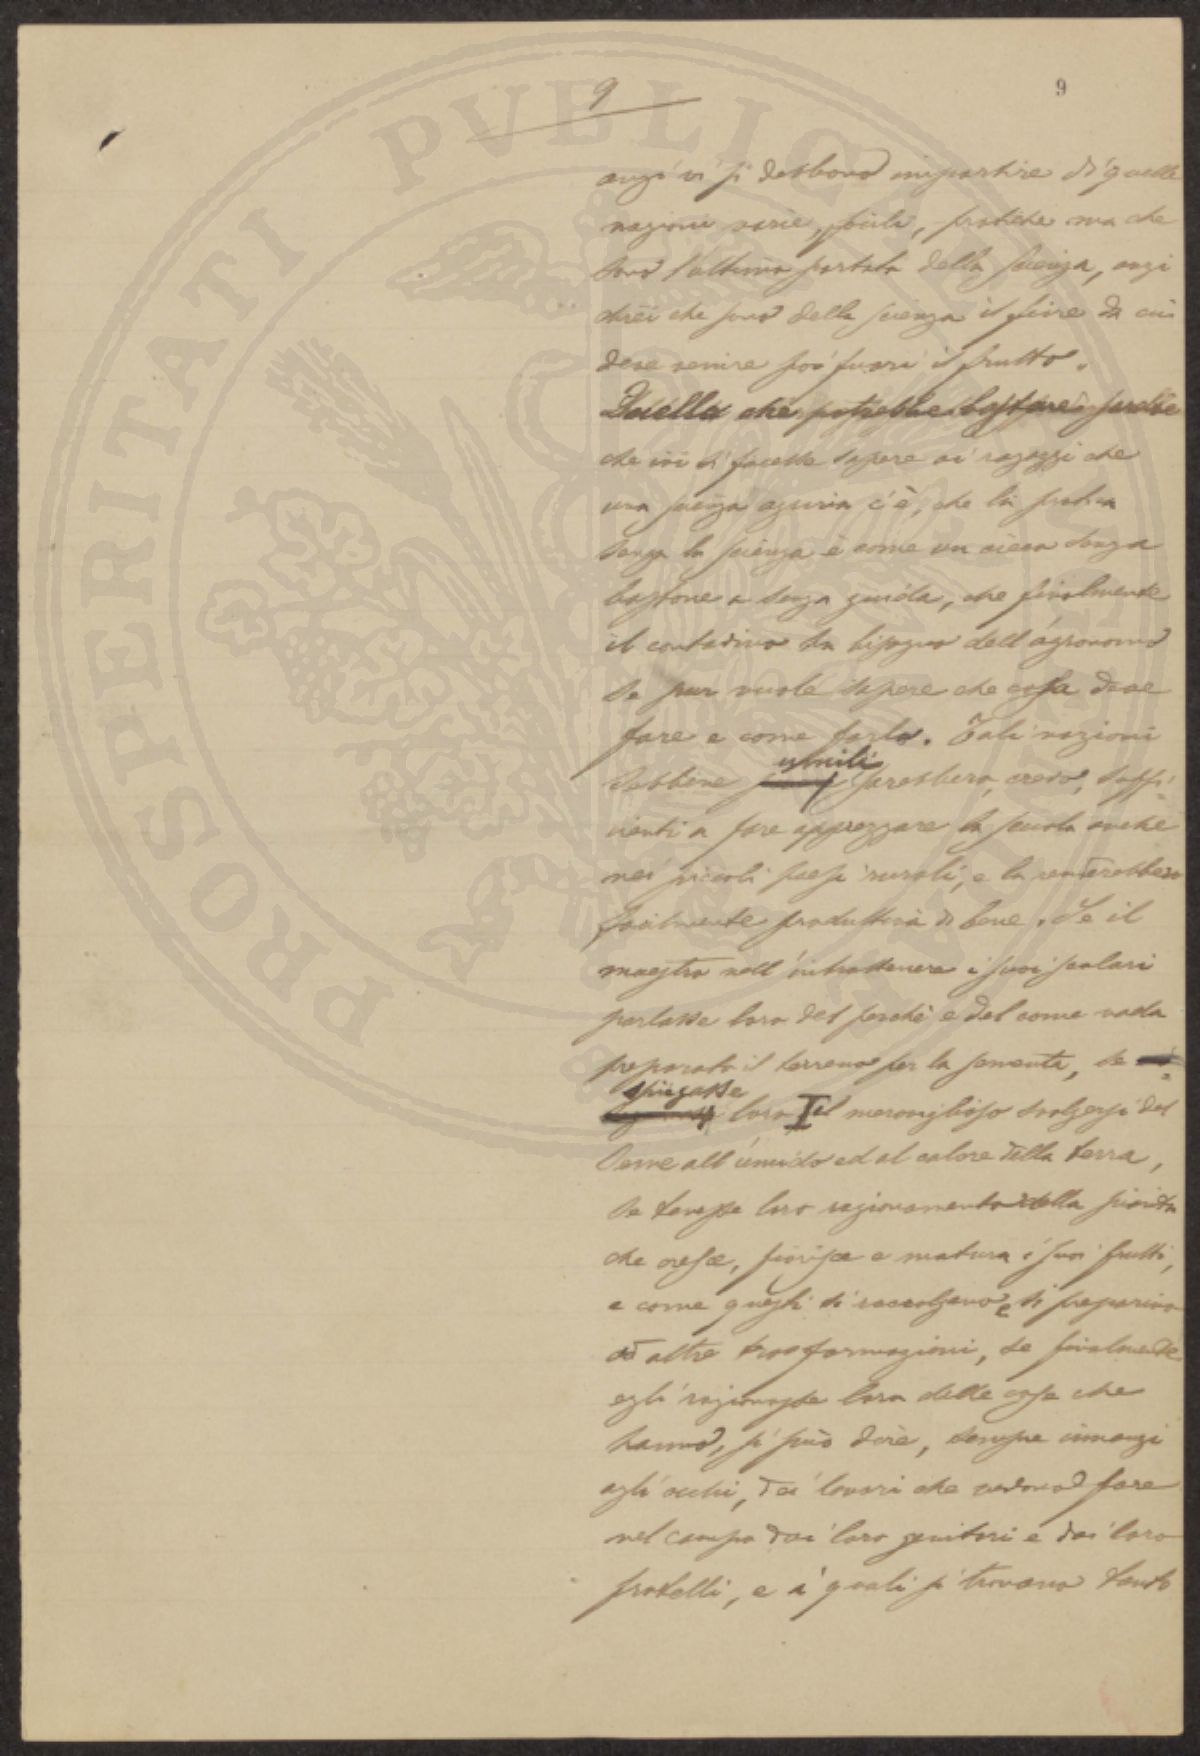 9
9
anzi vi si debbono impartire di quelle
nozioni varie, facili, pratiche ma che
sono l'ultimo portato della scienza, anzi
direi che sono della scienza il fiore da cui
deve venire poi fuori il frutto.
che potrebbe bastare sarebbe
che ivi si facesse sapere ai ragazzi che
una scienza agraria c'è, che la pratica
senza la scienza è come un cieco senza
bastone e senza guida, che finalmente
il contadino ha bisogno dell'agronomo
se pur vuole sapere che cosa deve
fare e come farlo. Tali nozioni
sebbene umili sarebbero, credo, suffi-
cienti a fare apprezzare la scuola anche
nei piccoli paesi rurali, e la renderebbero
facilmente produttiva di bene. Se il
maestro nell'intrattenere i suoi scolari
parlasse loro del perchè e del come vada
preparato il terreno per la sementa, se
spiegasse loro il meraviglioso svolgersi del
seme all'umido ed al calore della terra,
se tenesse loro ragionamento della pianta
che cresce, fiorisce e matura i suoi frutti,
e come questi si raccolgano e si preparino
ad altre trasformazioni, se finalmente
egli ragionasse loro delle cose che
hanno, si può dire, sempre innanzi
agli occhi, dei lavori che vedono fare
nel campo dai loro genitori e dai loro
fratelli, e a' quali si trovano tanto
PROSPERITATI PVBLICAE